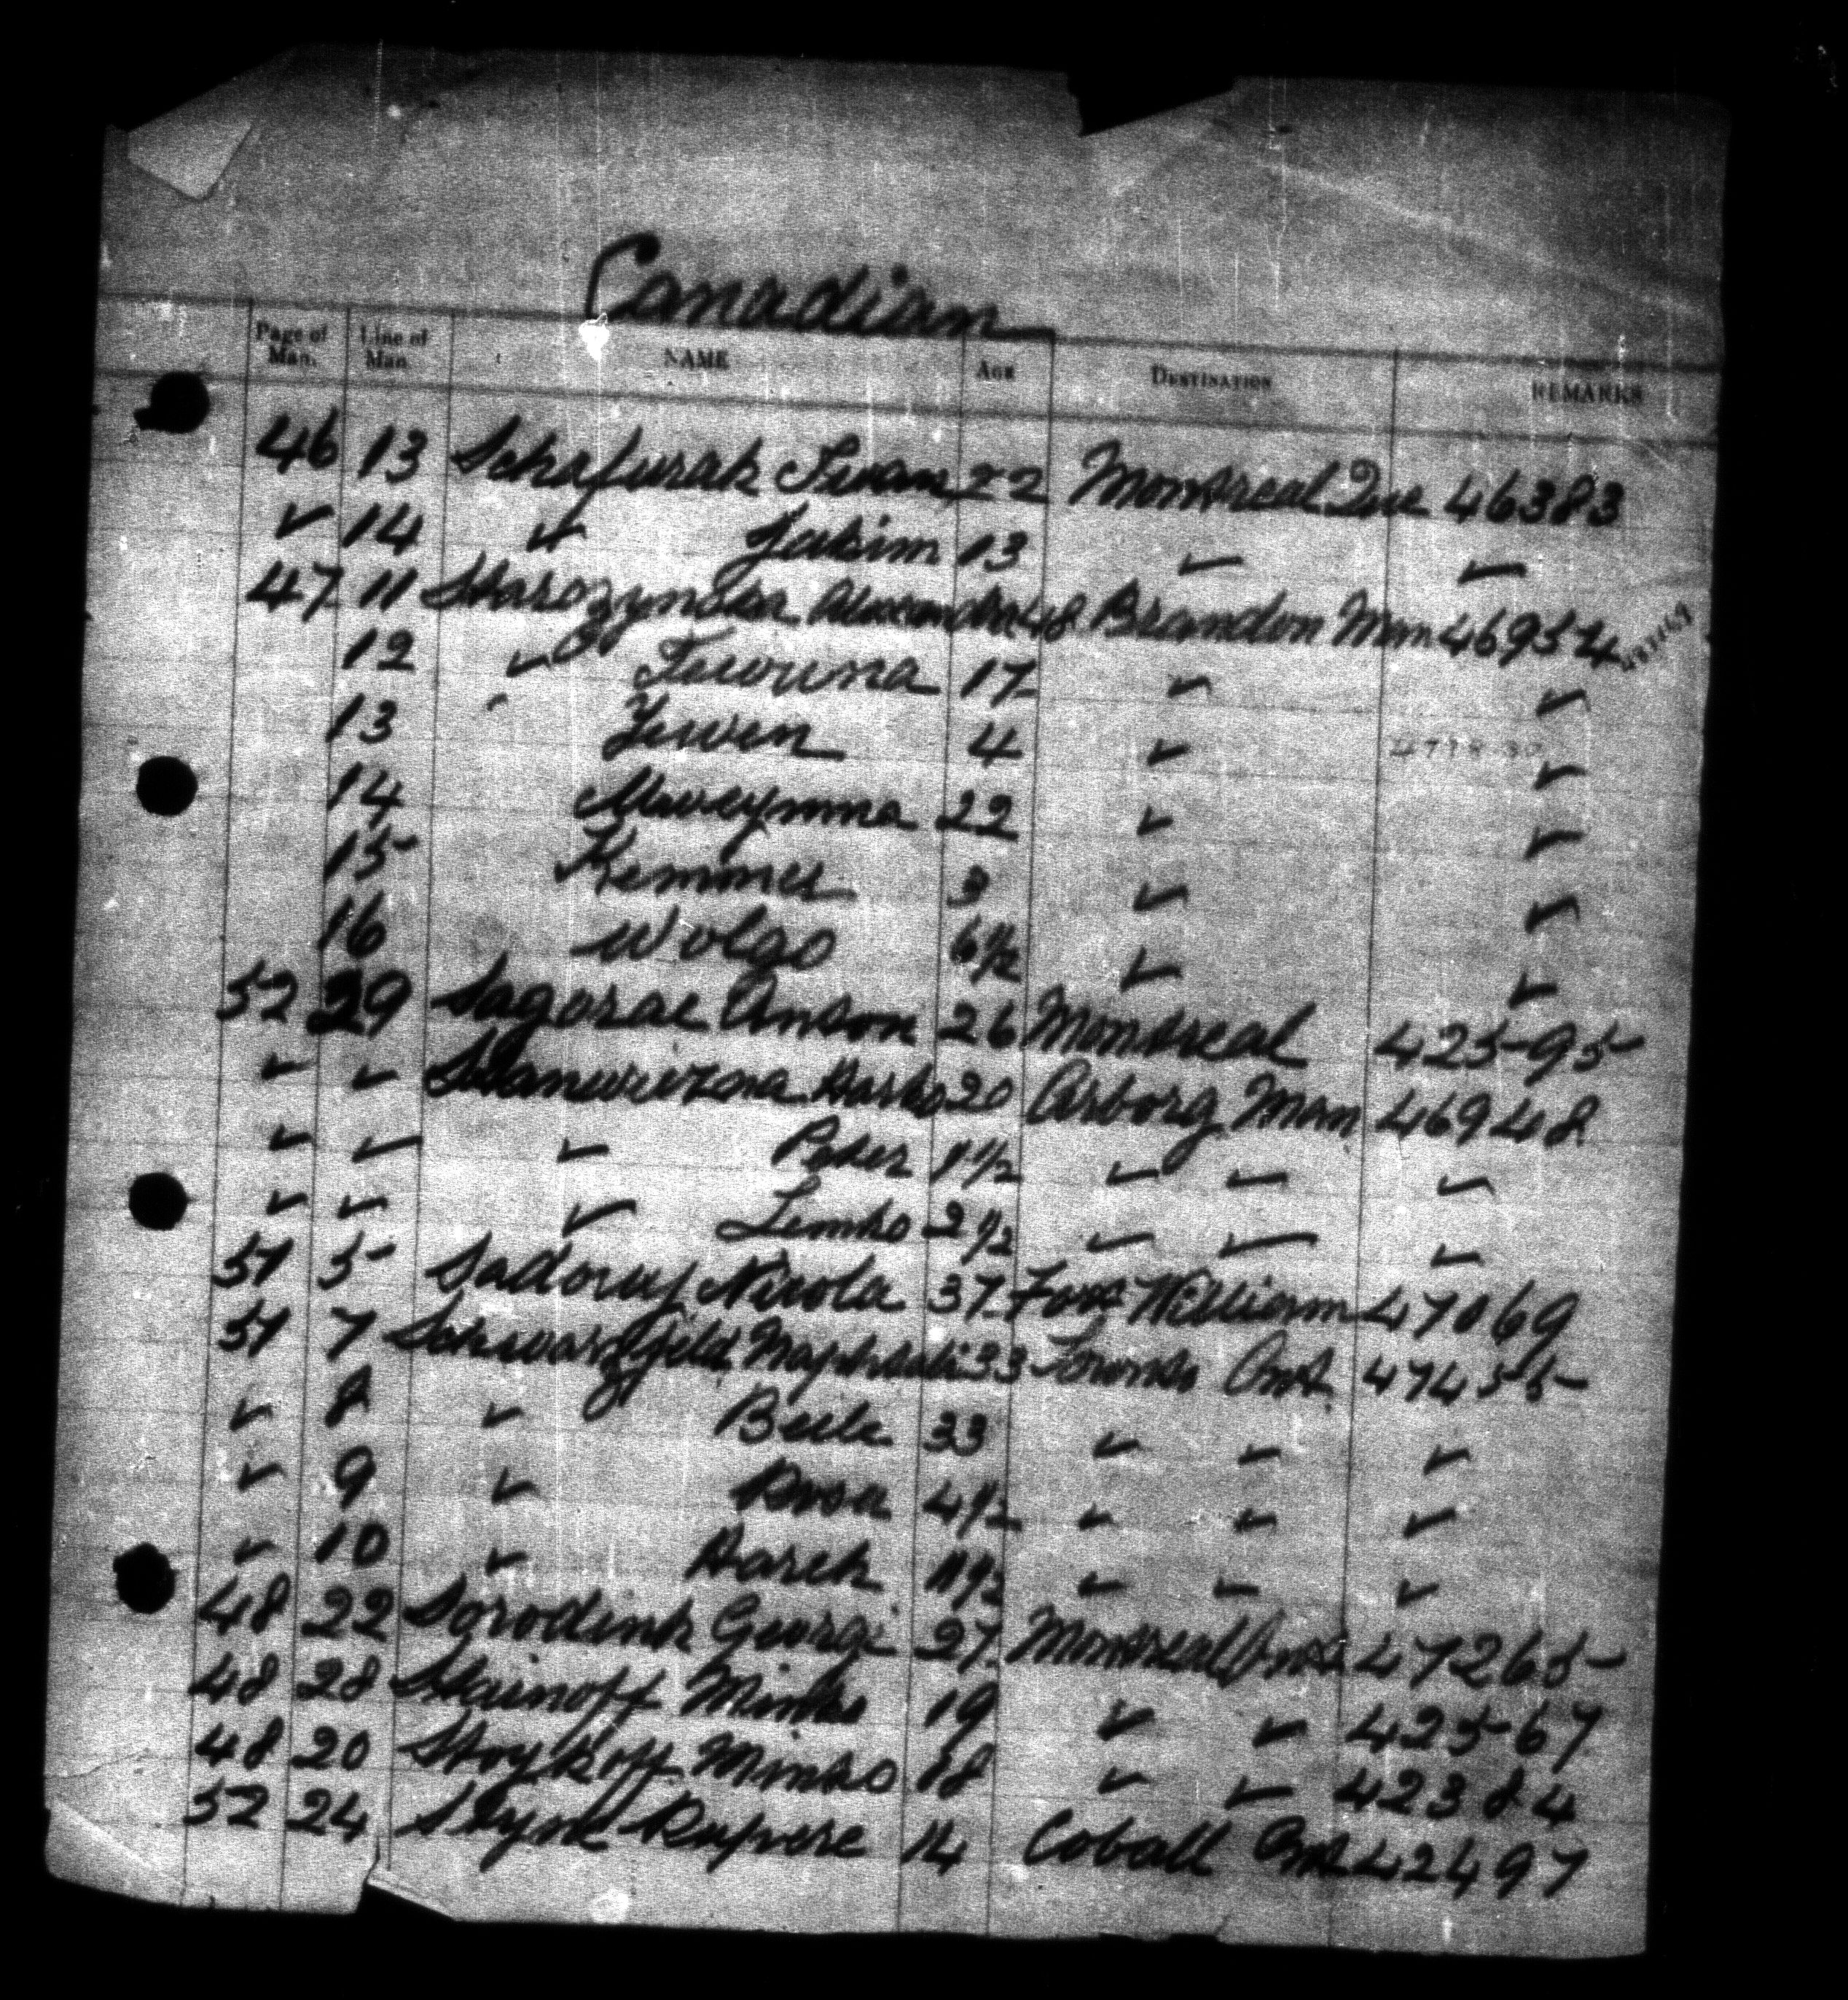 Canadian
Page of Man. Line of Man NAME AGE DESTINATION REMARKS
46 13 Schafurak Iwan 22 Montreal Que 46383
✓ 14 ✓ Jakim 13 ✓ ✓
47 11 Starozynska Alexandra 48 Brandon Man 46954
12 ✓ Fewruna 17 ✓ ✓
13 Jewen 4 ✓ ✓
14 22 ✓ ✓
15 Kemmer 3 ✓ ✓
16 Wolgo 6½ ✓ ✓
52 29 Sagorac Anton 26 Montreal 42595
✓ ✓ 20 Arborg Man 46948
✓ ✓ ✓ Peter 11½ ✓ ✓ ✓
✓ ✓ ✓ Lemko 2½ ✓ ✓ ✓
51 5 Sadowy Nicola 37 Fort William 47069
51 7 Schwarzfeld Naphtali 33 Toronto Ont. 47455
✓ 8 ✓ Beile 33 ✓ ✓ ✓
✓ 9 ✓ Rosa 4½ ✓ ✓ ✓
✓ 10 ✓ Harch 11½ ✓ ✓ ✓
48 22 Sorodenk Georgi 27 Montreal Ont 47265
48 28 Stainoff Minko 19 ✓ ✓ 42567
48 20 Stoykoff Minko 18 ✓ ✓ 42384
52 24 Rupere 14 Cobalt Ont 42497